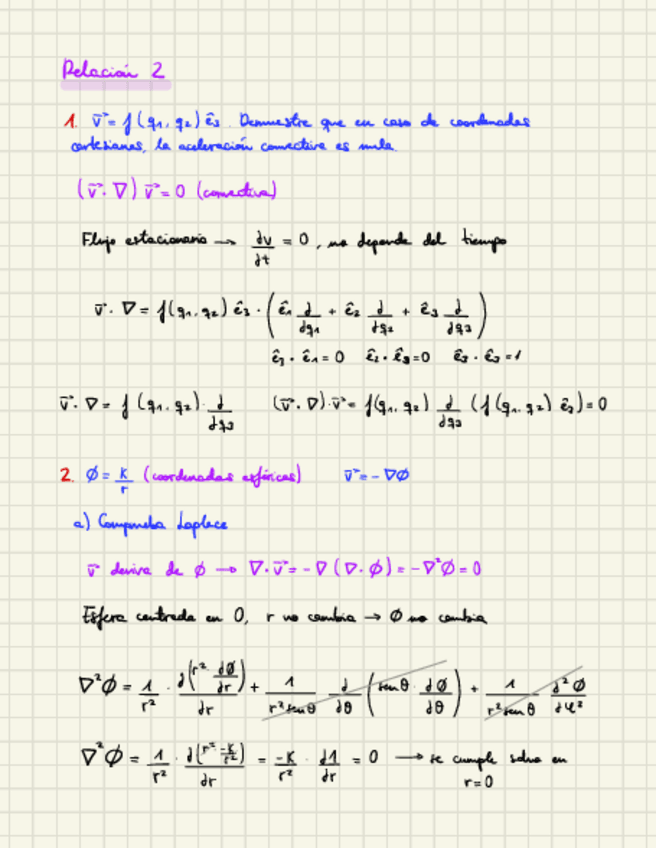 Relación 2
1. v⃗ = f(q₁, q₂) ê₃. Demuestre que en caso de coordenadas
cartesianas, la aceleración convectiva es nula.
(v⃗·∇) v⃗ = 0 (convectiva)
Flujo estacionario → dv/dt = 0, no depende del tiempo
v⃗·∇ = f(q₁, q₂) ê₃ · (ê₁ d/dq₁ + ê₂ d/dq₂ + ê₃ d/dq₃)
ê₃·ê₁ = 0 ê₂·ê₃ = 0 ê₃·ê₃ = 1
v⃗·∇ = f(q₁, q₂)· d/dq₃ (v⃗·∇)·v⃗ = f(q₁, q₂) d/dq₃ (f(q₁, q₂) ê₃) = 0
2. Ø = K/r (coordenadas esféricas) v⃗ = -∇Ø
a) Comprueba Laplace
v⃗ deriva de Ø → ∇·v⃗ = -∇(∇·Ø) = -∇²Ø = 0
Esfera centrada en O, r no cambia → Ø no cambia
∇²Ø = 1/r² · d(r² dØ/dr)/dr + 1/(r² senθ) d/dθ (senθ · dØ/dθ) + 1/(r² senθ) d²Ø/dφ²
∇²Ø = 1/r² · d(r² -K/r²)/dr = -K/r² · d1/dr = 0 → se cumple salvo en
r = 0